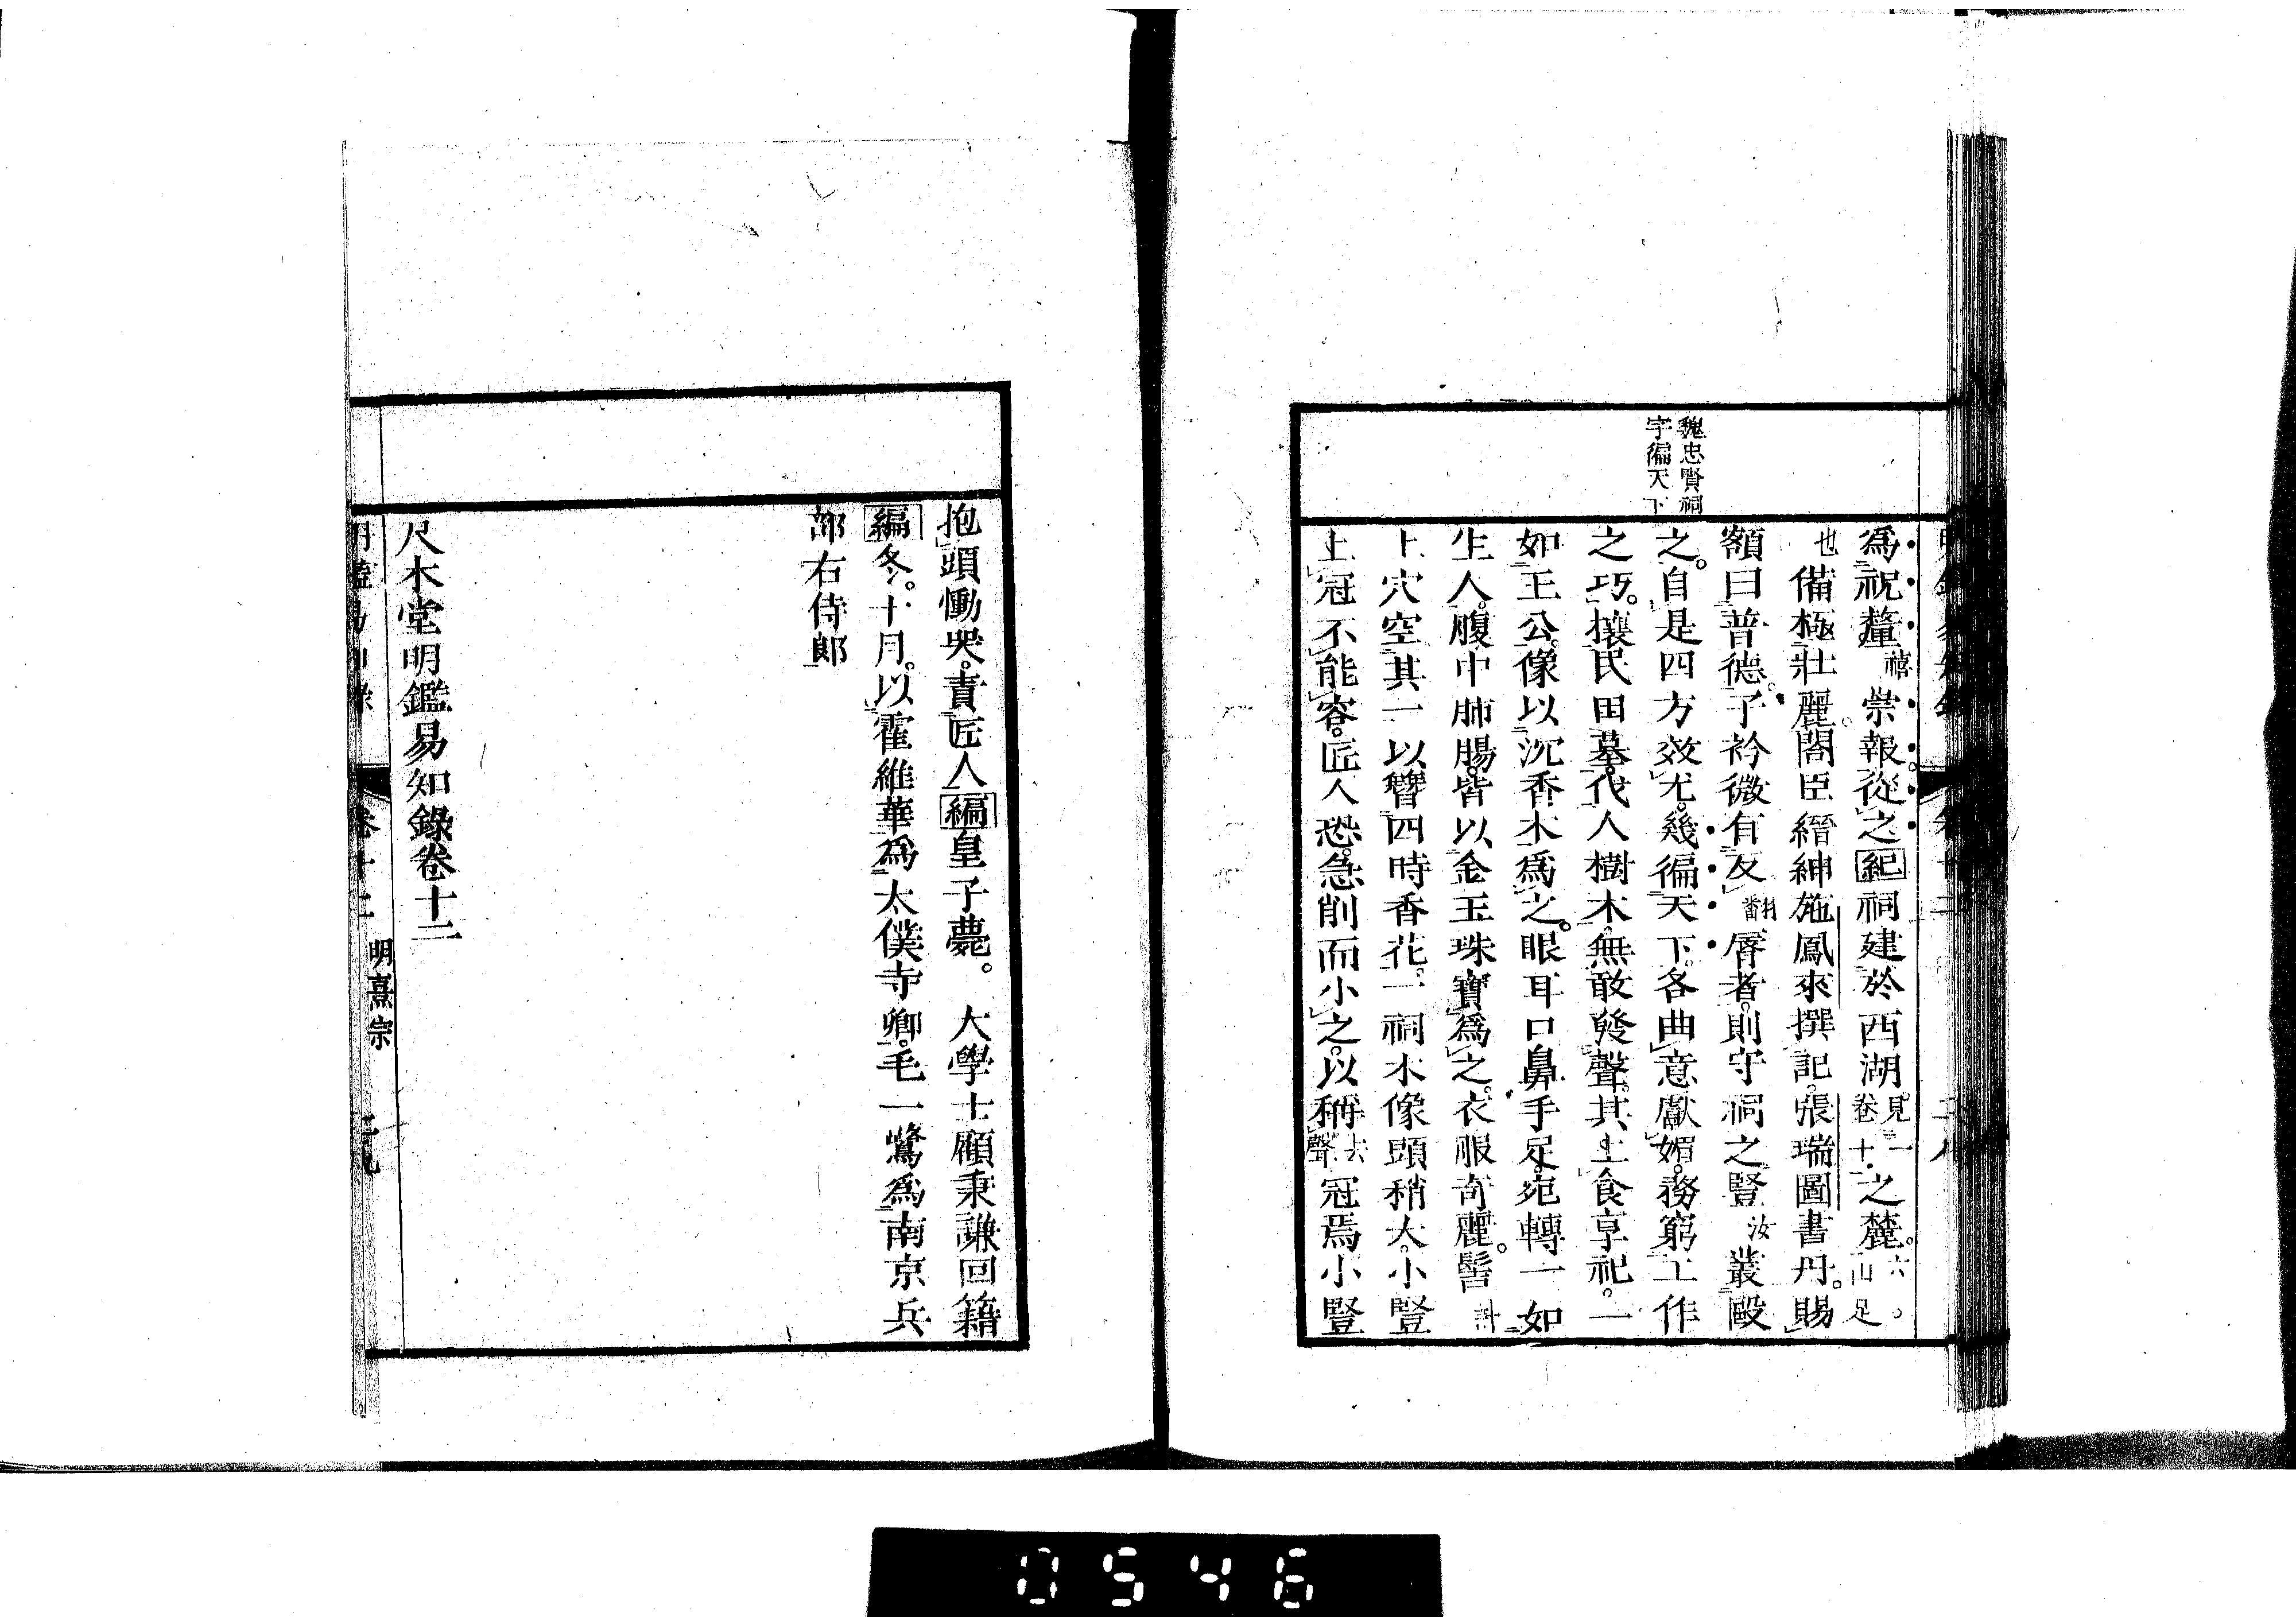 魏忠賢祠
宇徧天下
爲祝釐禧崇報從之紀祠建於西湖見一卷十一之麓六。山足
也備極壯麗閣臣縉紳施鳳來撰記張瑞圖書丹。賜
額曰普德。子衿微有反脣者則守祠之豎汝叢毆
之。自是四方效尤。幾徧天下。各曲意獻媚務窮工作
之巧。攘民田墓。伐人樹木無敢發聲其上食享祀。一
如王公。像以沉香木爲之。眼耳口鼻手足宛轉一如
生人。腹中肺腸。皆以金玉珠寶爲之。衣服奇麗。髻計
上穴空其一以簪四時香花。一祠木像頭稍大。小豎
上冠不能容。匠人恐急削而小之。以稱去聲冠焉小豎
抱頭慟哭。責匠人編皇子薨。大學士顧秉謙回籍
編冬。十月。以霍維華爲太僕寺卿。毛一鷺爲南京兵
部右侍郎
尺木堂明鑑易知錄卷十二
卷十二 明熹宗
0546